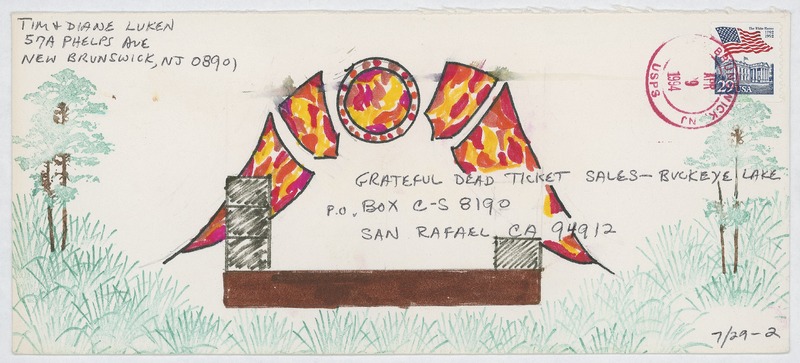 TIM & DIANE LUKEN
57A PHELPS AVE
NEW BRUNSWICK, NJ 08901
The White House
29 USA
USPS
APR
9
1994
NJ
GRATEFUL DEAD TICKET SALES — BUCKEYE LAKE
P.O. BOX C-S 8190
SAN RAFAEL, CA 94912
7/29-2